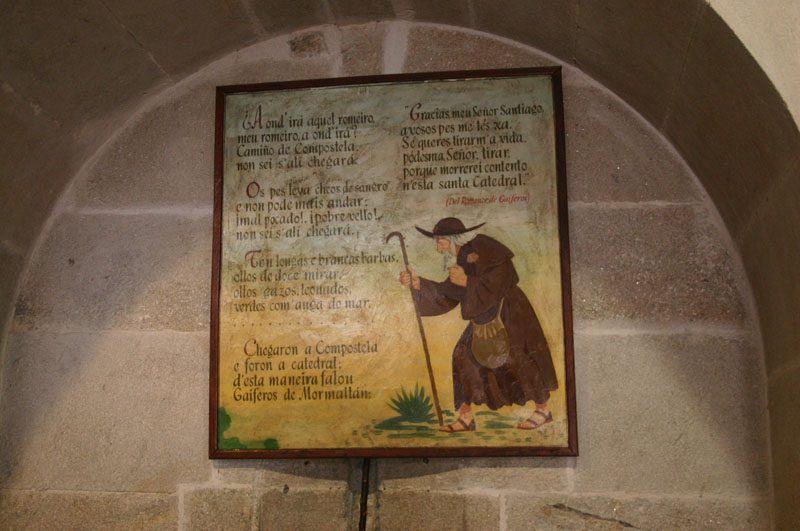 A ond' irá aquel romeiro,
meu romeiro, a ond' irá?
Camiño de Compostela,
non sei s'alí chegará.
Os pes leva cheos de sangre
e non pode mais andar:
¡mal pocado!, ¡pobre vello!,
non sei s'alí chegará.
Ten longas e brancas barbas,
ollos de doce mirar,
ollos gazos, leonados,
verdes com' auga do mar.
. . . . . . . . . . . . . .
Chegaron a Compostela
e foron a catedral;
d'esta maneira falou
Gaiferos de Mormaltán:
"Gracias, meu Señor Santiago,
a vosos pes me tés xa.
Se queres tirarm' a vida,
pódesma, Señor, tirar,
porque morrerei contento
n'esta santa Catedral."
(Del Romance de Gaiferos)